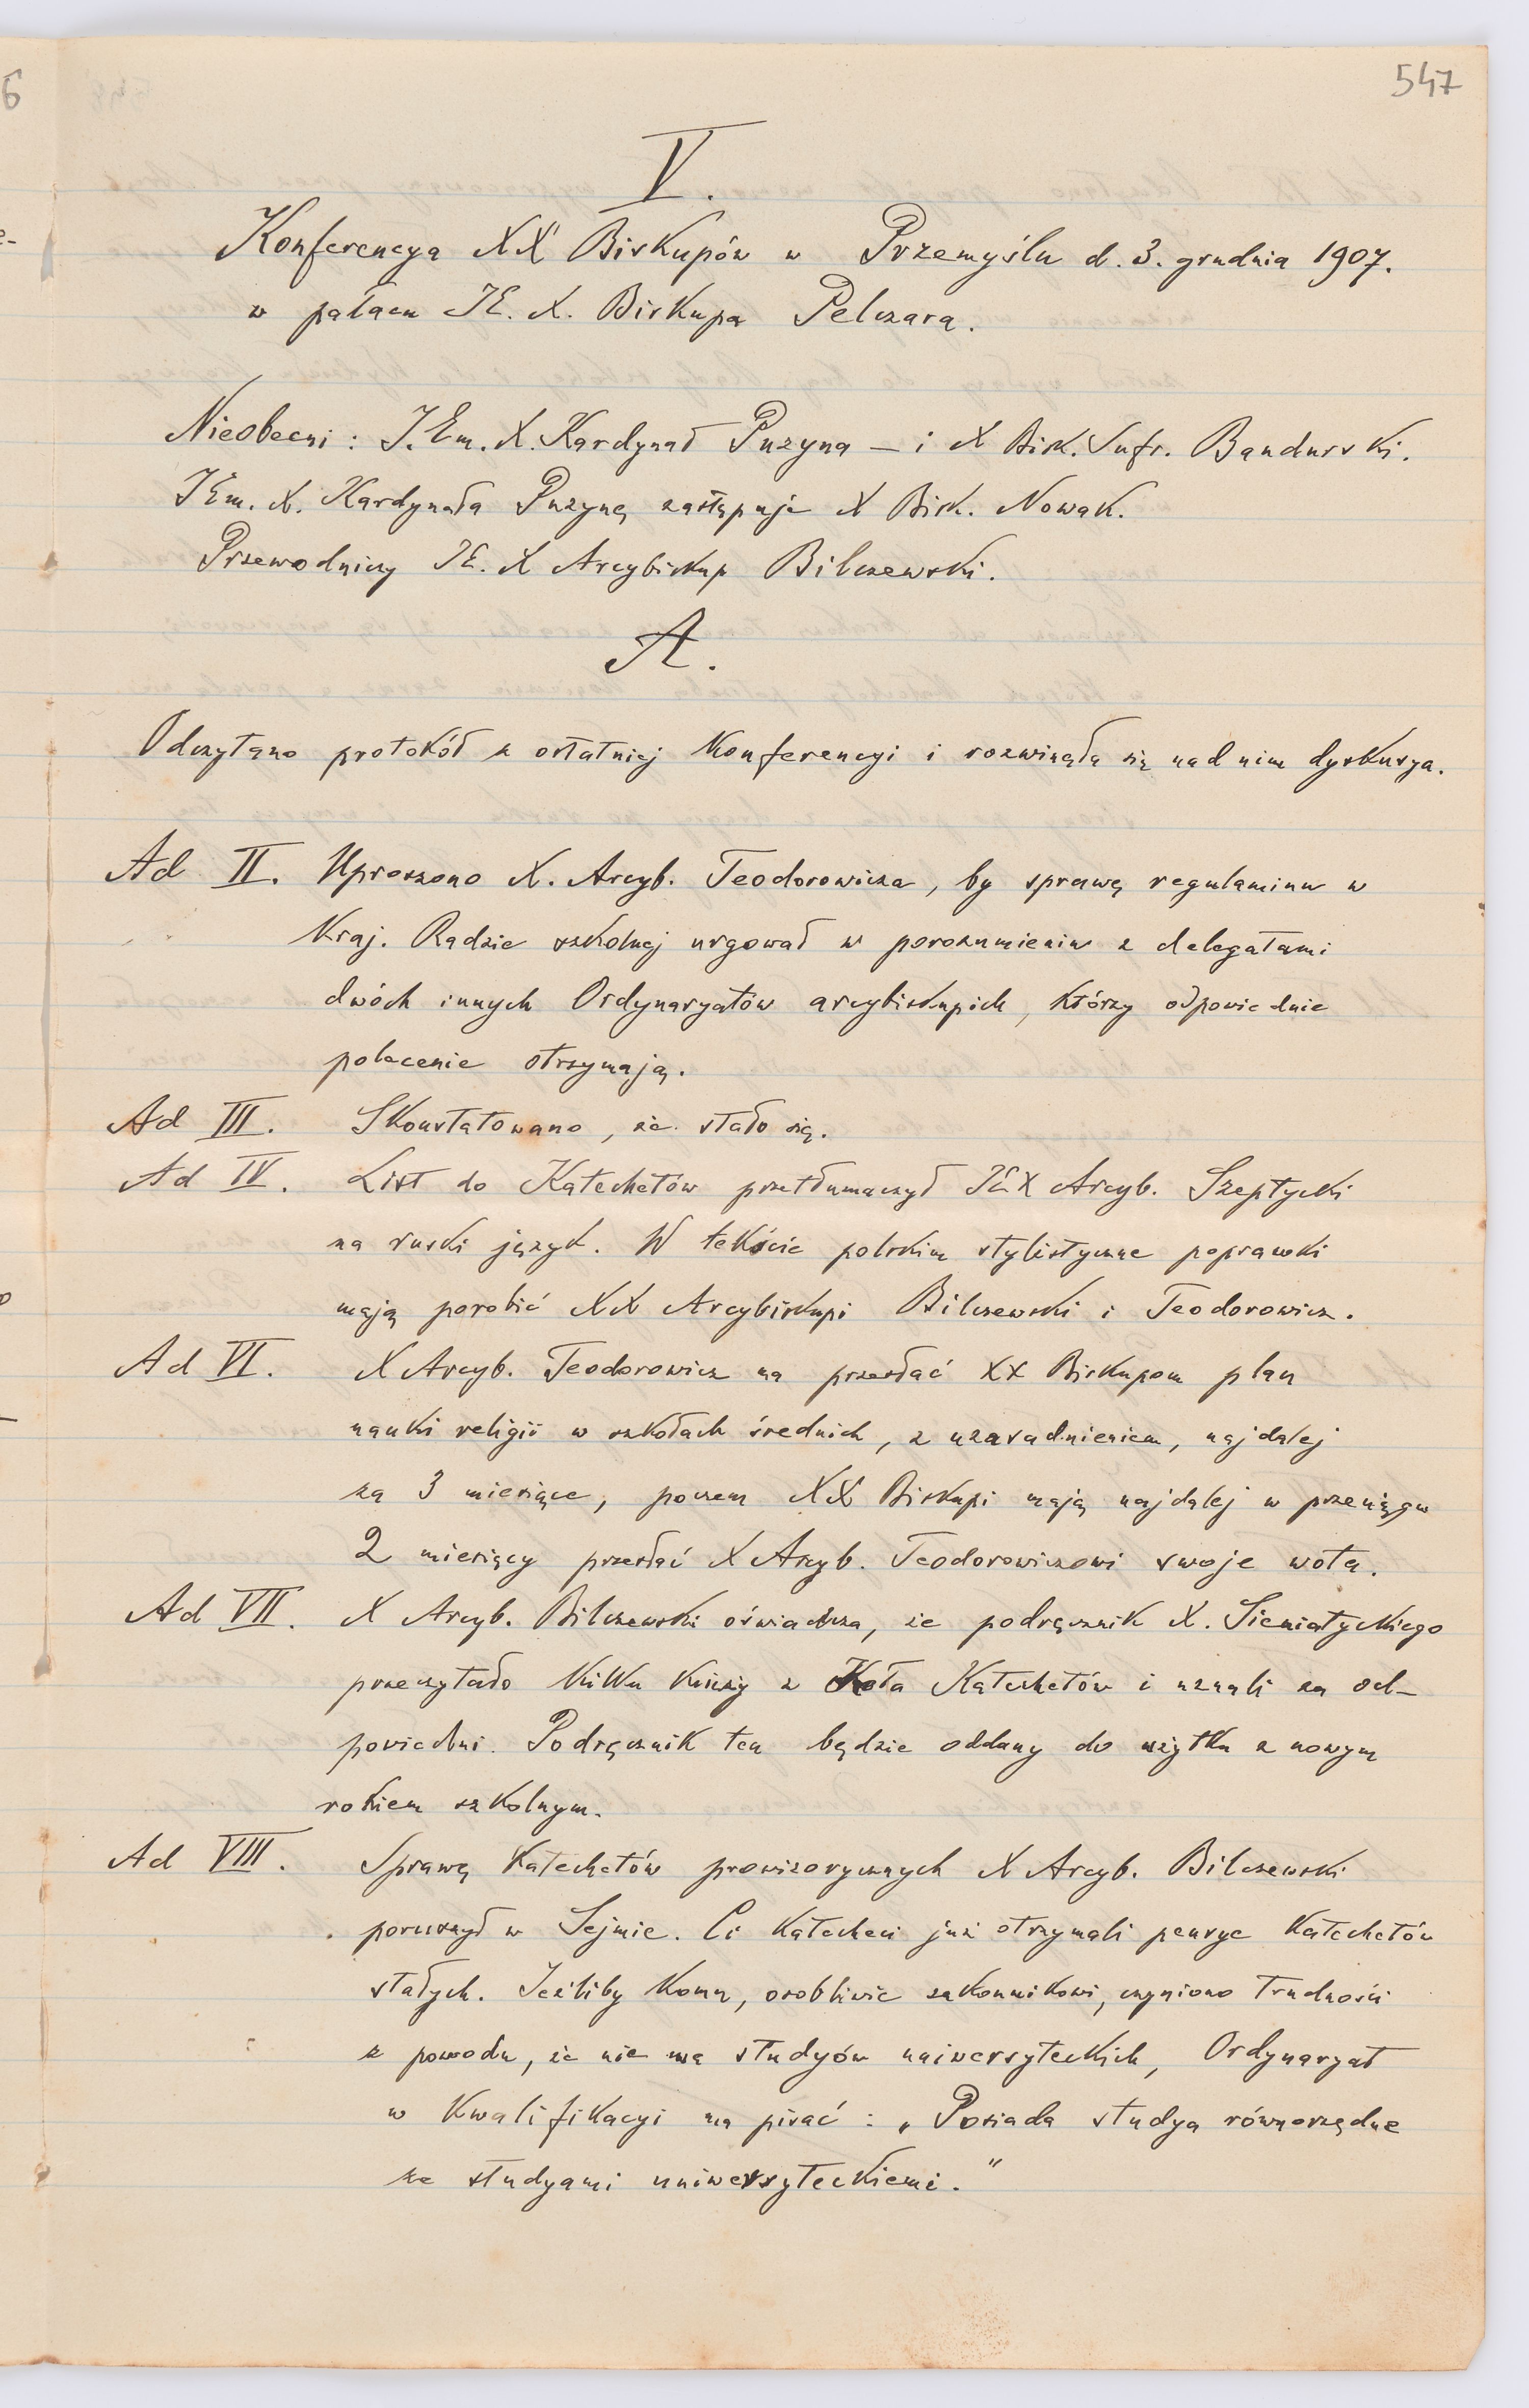 547
V.
Konferencya XX Biskupów w Przemyślu d. 3. grudnia 1907.
w pałacu JE. X. Biskupa Pelczara.
Nieobecni: J.Em. X. Kardynał Puzyna — i X Bisk. Sufr. Bandurski.
JEm. X. Kardynała Puzynę zastępuje X Bisk. Nowak.
Przewodniczy JE. X Arcybiskup Bilczewski.
A.
Odczytano protokół z ostatniej Konferencyi i rozwinęła się nad nim dyskusya.
Ad II. Uproszono X. Arcyb. Teodorowicza, by sprawę regulaminu w
Kraj. Radzie szkolnej urgował w porozumieniu z delegatami
dwóch innych Ordynaryatów arcybiskupich, którzy odpowiednie
polecenie otrzymają.
Ad III. Skonstatowano, że stało się.
Ad IV. List do Katechetów przetłumaczył JEX Arcyb. Szeptycki
na ruski język. W tekście polskim stylistyczne poprawki
mają porobić XX Arcybiskupi Bilczewski i Teodorowicz.
Ad VI. X Arcyb. Teodorowicz ma przesłać XX Biskupom plan
nauki religii w szkołach średnich, z uzasadnieniem, najdalej
za 3 miesiące, poczem XX Biskupi mają najdalej w przeciągu
2 miesięcy przesłać X Arcyb. Teodorowiczowi swoje wota.
Ad VII. X Arcyb. Bilczewski oświadcza, że podręcznik X. Sieniatyckiego
przeczytało kilku księży z Koła Katechetów i uznali za od-
powiedni. Podręcznik ten będzie oddany do użytku z nowym
rokiem szkolnym.
Ad VIII. Sprawę Katechetów prowizorycznych X Arcyb. Bilczewski
poruszył w Sejmie. Ci Katecheci już otrzymali pensye Katechetów
stałych. Jeżliby komu, osobliwie zakonnikowi, czyniono trudności
z powodu, że nie ma studyów uniwersyteckich, Ordynaryat
w kwalifikacyi ma pisać: „Posiada studya równorzędne
ze studyami uniwersyteckiemi."